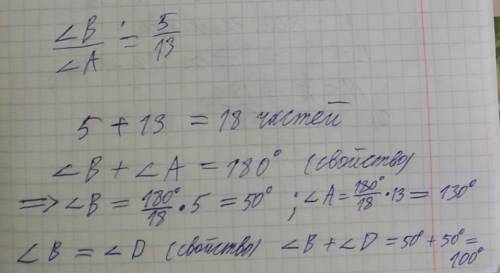 ∠B / ∠A = 5/13
5 + 13 = 18 частей
∠B + ∠A = 180° (свойство)
=> ∠B = 180°/18 · 5 = 50° ; ∠A = 180°/18 · 13 = 130°
∠B = ∠D (свойство) ∠B + ∠D = 50° + 50° =
100°